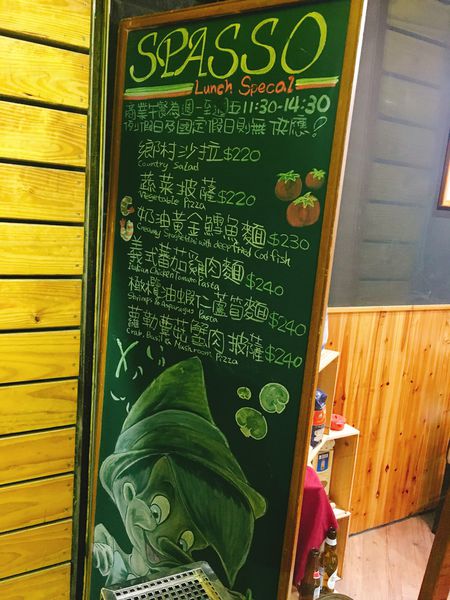 SPASSO
Lunch Specal
商業午餐為週一至週五11:30-14:30
例假日及國定假日則無供應?
鄉村沙拉$220
Country Salad
蔬菜披薩$220
Vegetable Pizza
奶油黃金鱈魚麵$230
Creamy Spaghettini with deepfried Cod fish
義式蕃茄雞肉麵$240
Italian Chicken Tomato Pasta
橄欖油蝦仁蘆筍麵$240
Shrimps & Asparagus Pasta
蘿勒蘑菇蟹肉披薩$240
Crab, Basil & Mushroom Pizza